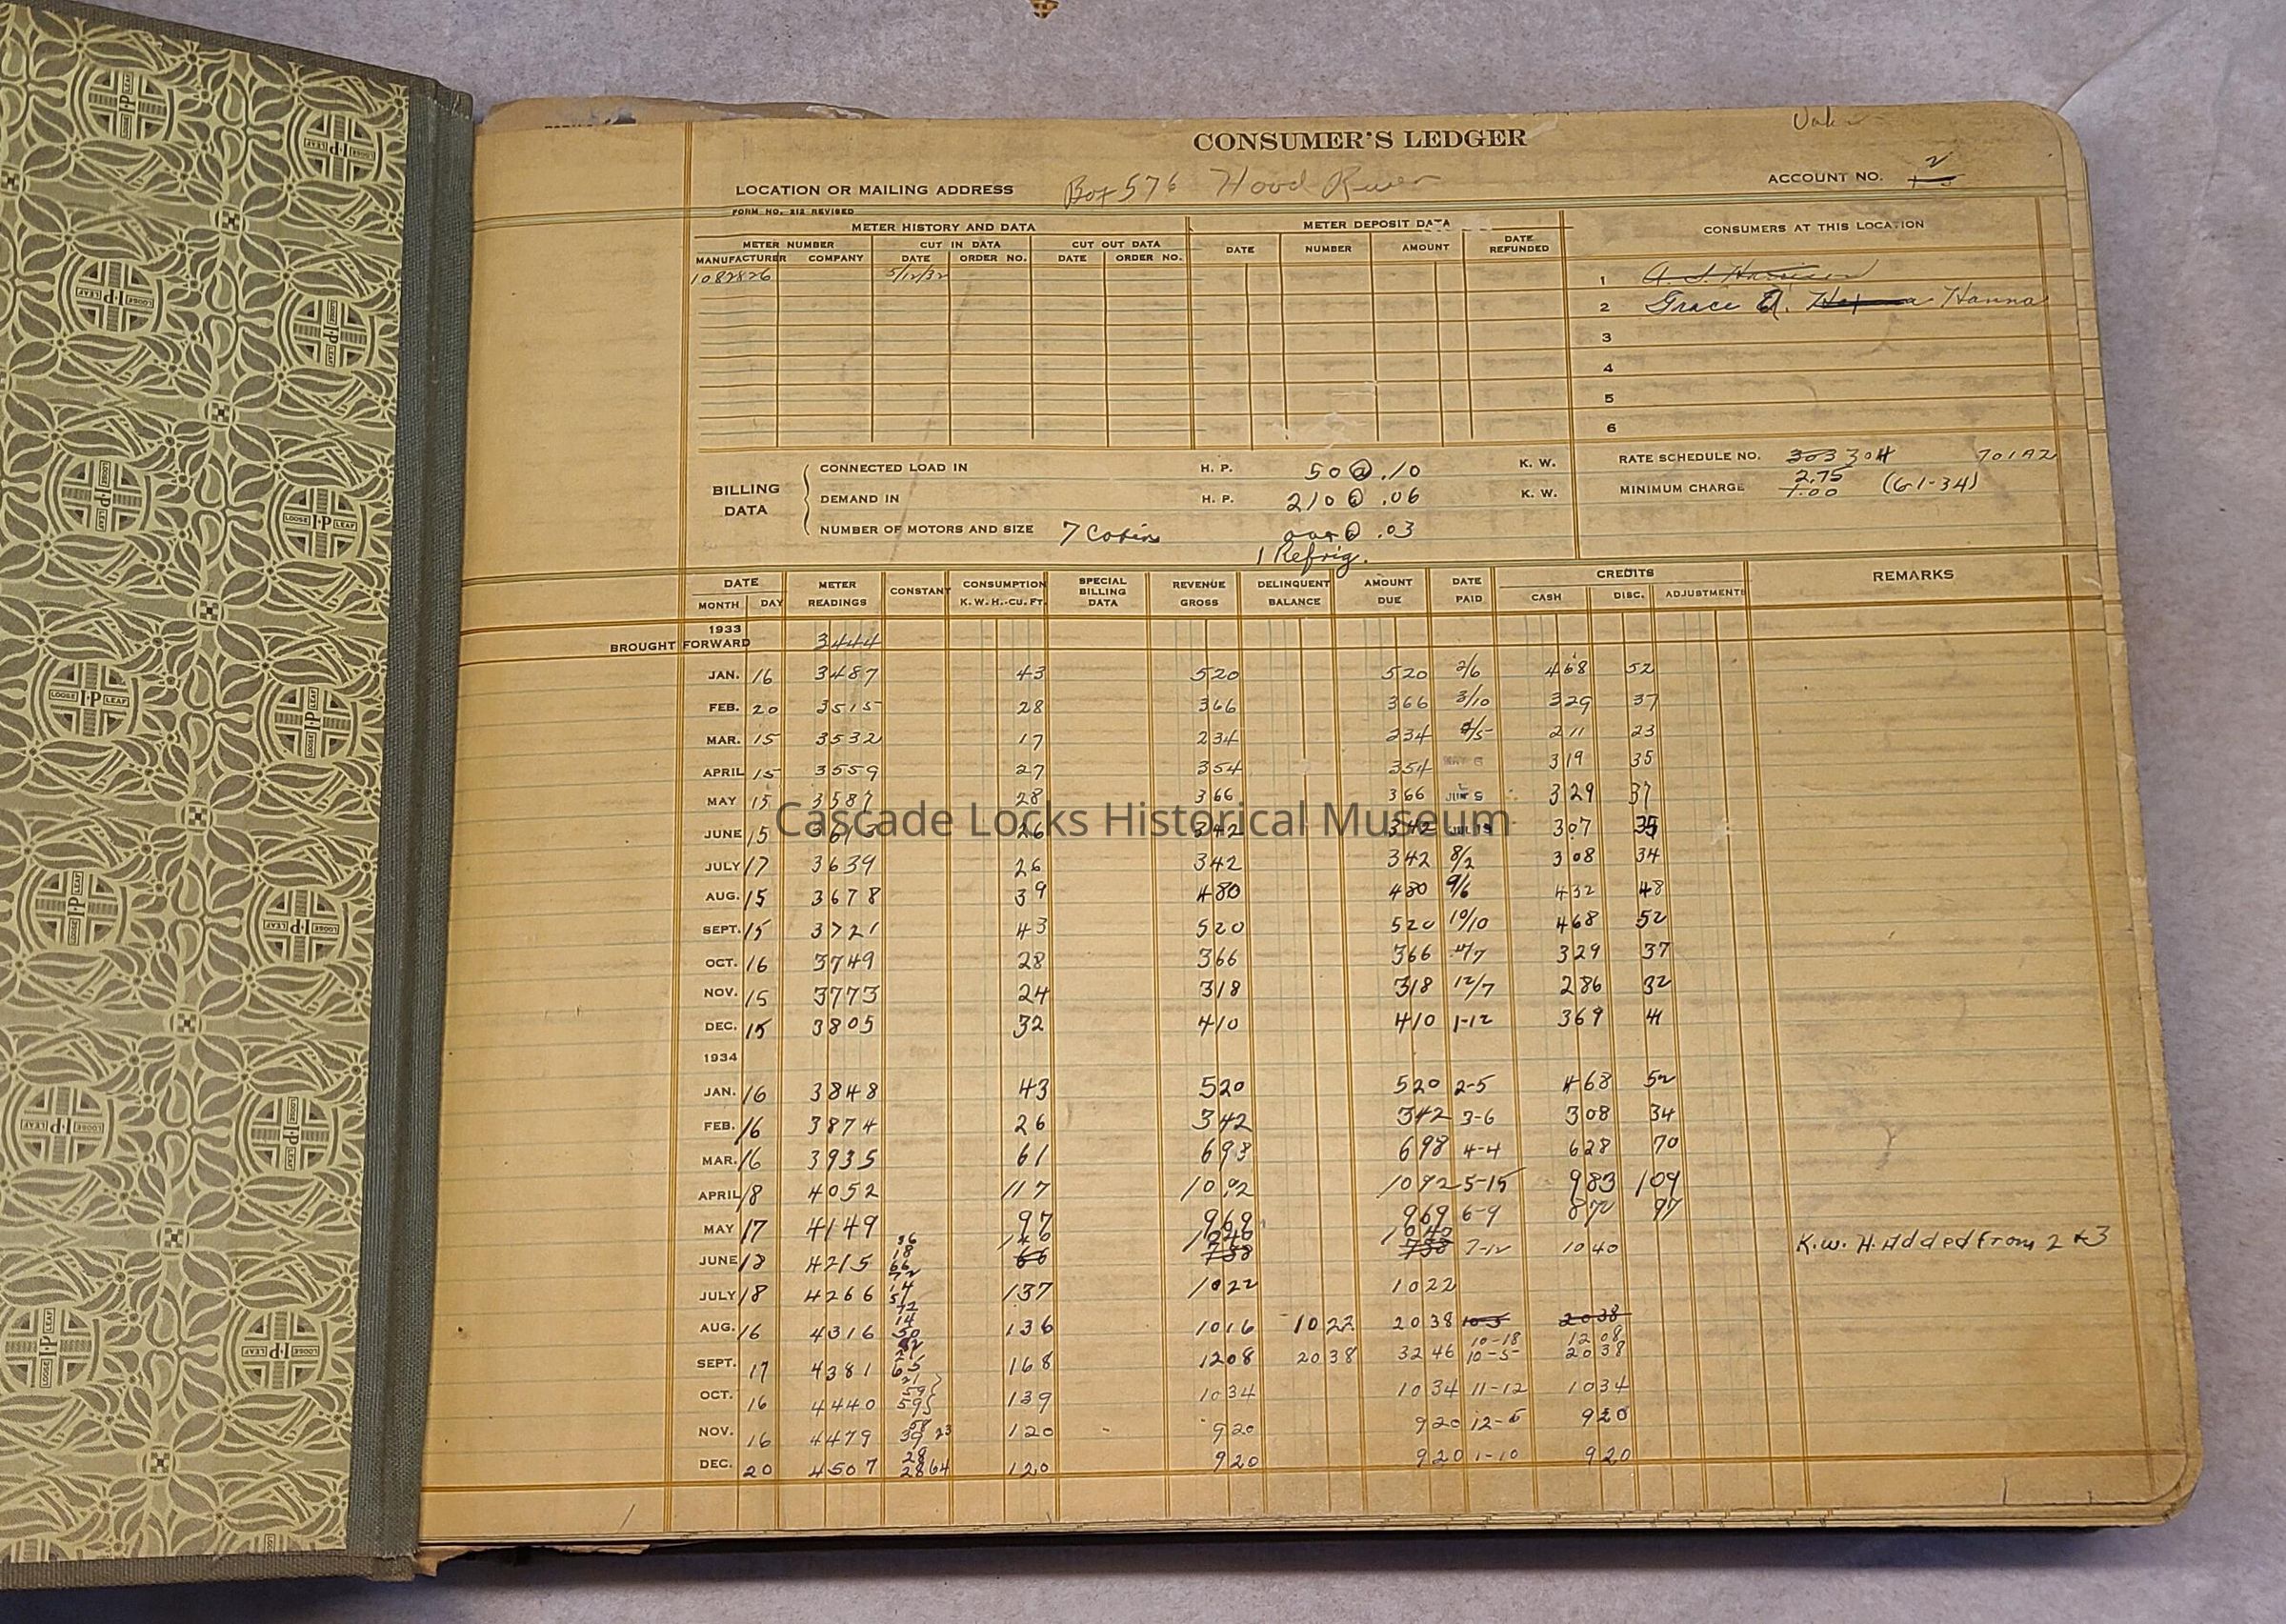 CONSUMER'S LEDGER
LOCATION OR MAILING ADDRESS Box 576 Hood River
ACCOUNT NO. 2
FORM NO. 212 REVISED
METER HISTORY AND DATA METER DEPOSIT DATA CONSUMERS AT THIS LOCATION
METER NUMBER CUT IN DATA CUT OUT DATA DATE NUMBER AMOUNT DATE REFUNDED
MANUFACTURER COMPANY DATE ORDER NO. DATE ORDER NO.
1082826 5/12/32
1 A. S. Harrison
2 Grace A. Hanna
3
4
5
6
BILLING DATA
CONNECTED LOAD IN H. P. 50 @ .10 K. W.
DEMAND IN H. P. 210 @ .06 K. W.
NUMBER OF MOTORS AND SIZE 7 Cabins over @ .03
1 Refrig.
RATE SCHEDULE NO. 303 304 701A2
MINIMUM CHARGE 2.75 1.00 (6-1-34)
DATE METER READINGS CONSTANT CONSUMPTION SPECIAL BILLING DATA REVENUE GROSS DELINQUENT BALANCE AMOUNT DUE DATE PAID CREDITS REMARKS
MONTH DAY K. W. H.-CU. FT. CASH DISC. ADJUSTMENTS
1933
BROUGHT FORWARD 3444
JAN. 16 3487 43 520 520 2/6 468 52
FEB. 20 3515 28 366 366 3/10 329 37
MAR. 15 3532 17 234 234 4/5 211 23
APRIL 15 3559 27 354 354 MAY 6 319 35
MAY 15 3587 28 366 366 JUN 5 329 37
JUNE 15 3613 26 342 342 307 35
JULY 17 3639 26 342 342 8/2 308 34
AUG. 15 3678 39 480 480 9/6 432 48
SEPT. 15 3721 43 520 520 10/10 468 52
OCT. 16 3749 28 366 366 11/7 329 37
NOV. 15 3773 24 318 318 12/7 286 32
DEC. 15 3805 32 410 410 1-12 369 41
1934
JAN. 16 3848 43 520 520 2-5 468 52
FEB. 16 3874 26 342 342 3-6 308 34
MAR. 16 3935 61 698 698 4-4 628 70
APRIL 18 4052 117 1092 1092 5-15 983 109
MAY 17 4149 97 969 969 6-9 872 97
JUNE 18 4215 66 140 66 1040 738 1040 738 7-12 1040 K.W.H. Added from 2 & 3
JULY 18 4266 137 1022 1022
AUG. 16 4316 50 136 1016 1022 2038 10-5 2038
SEPT. 17 4381 65 168 1208 2038 3246 10-18 10-5 1208 2038
OCT. 16 4440 21 59 59 139 1034 1034 11-12 1034
NOV. 16 4479 58 39 23 120 920 920 12-5 920
DEC. 20 4507 28 28 64 120 920 920 1-10 920
Cascade Locks Historical Museum
LOOSE I-P LEAF